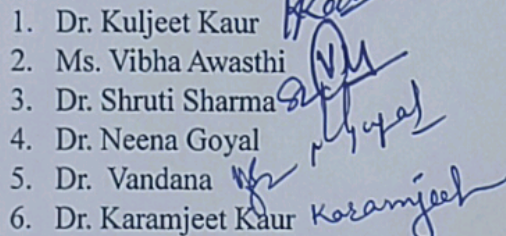 1. Dr. Kuljeet Kaur
2. Ms. Vibha Awasthi
3. Dr. Shruti Sharma
4. Dr. Neena Goyal NGoyal
5. Dr. Vandana
6. Dr. Karamjeet Kaur Karamjeet